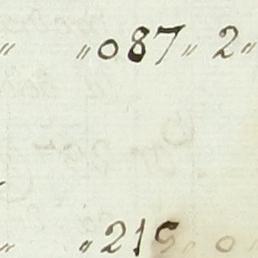 " "087" 2"
" "215" 0